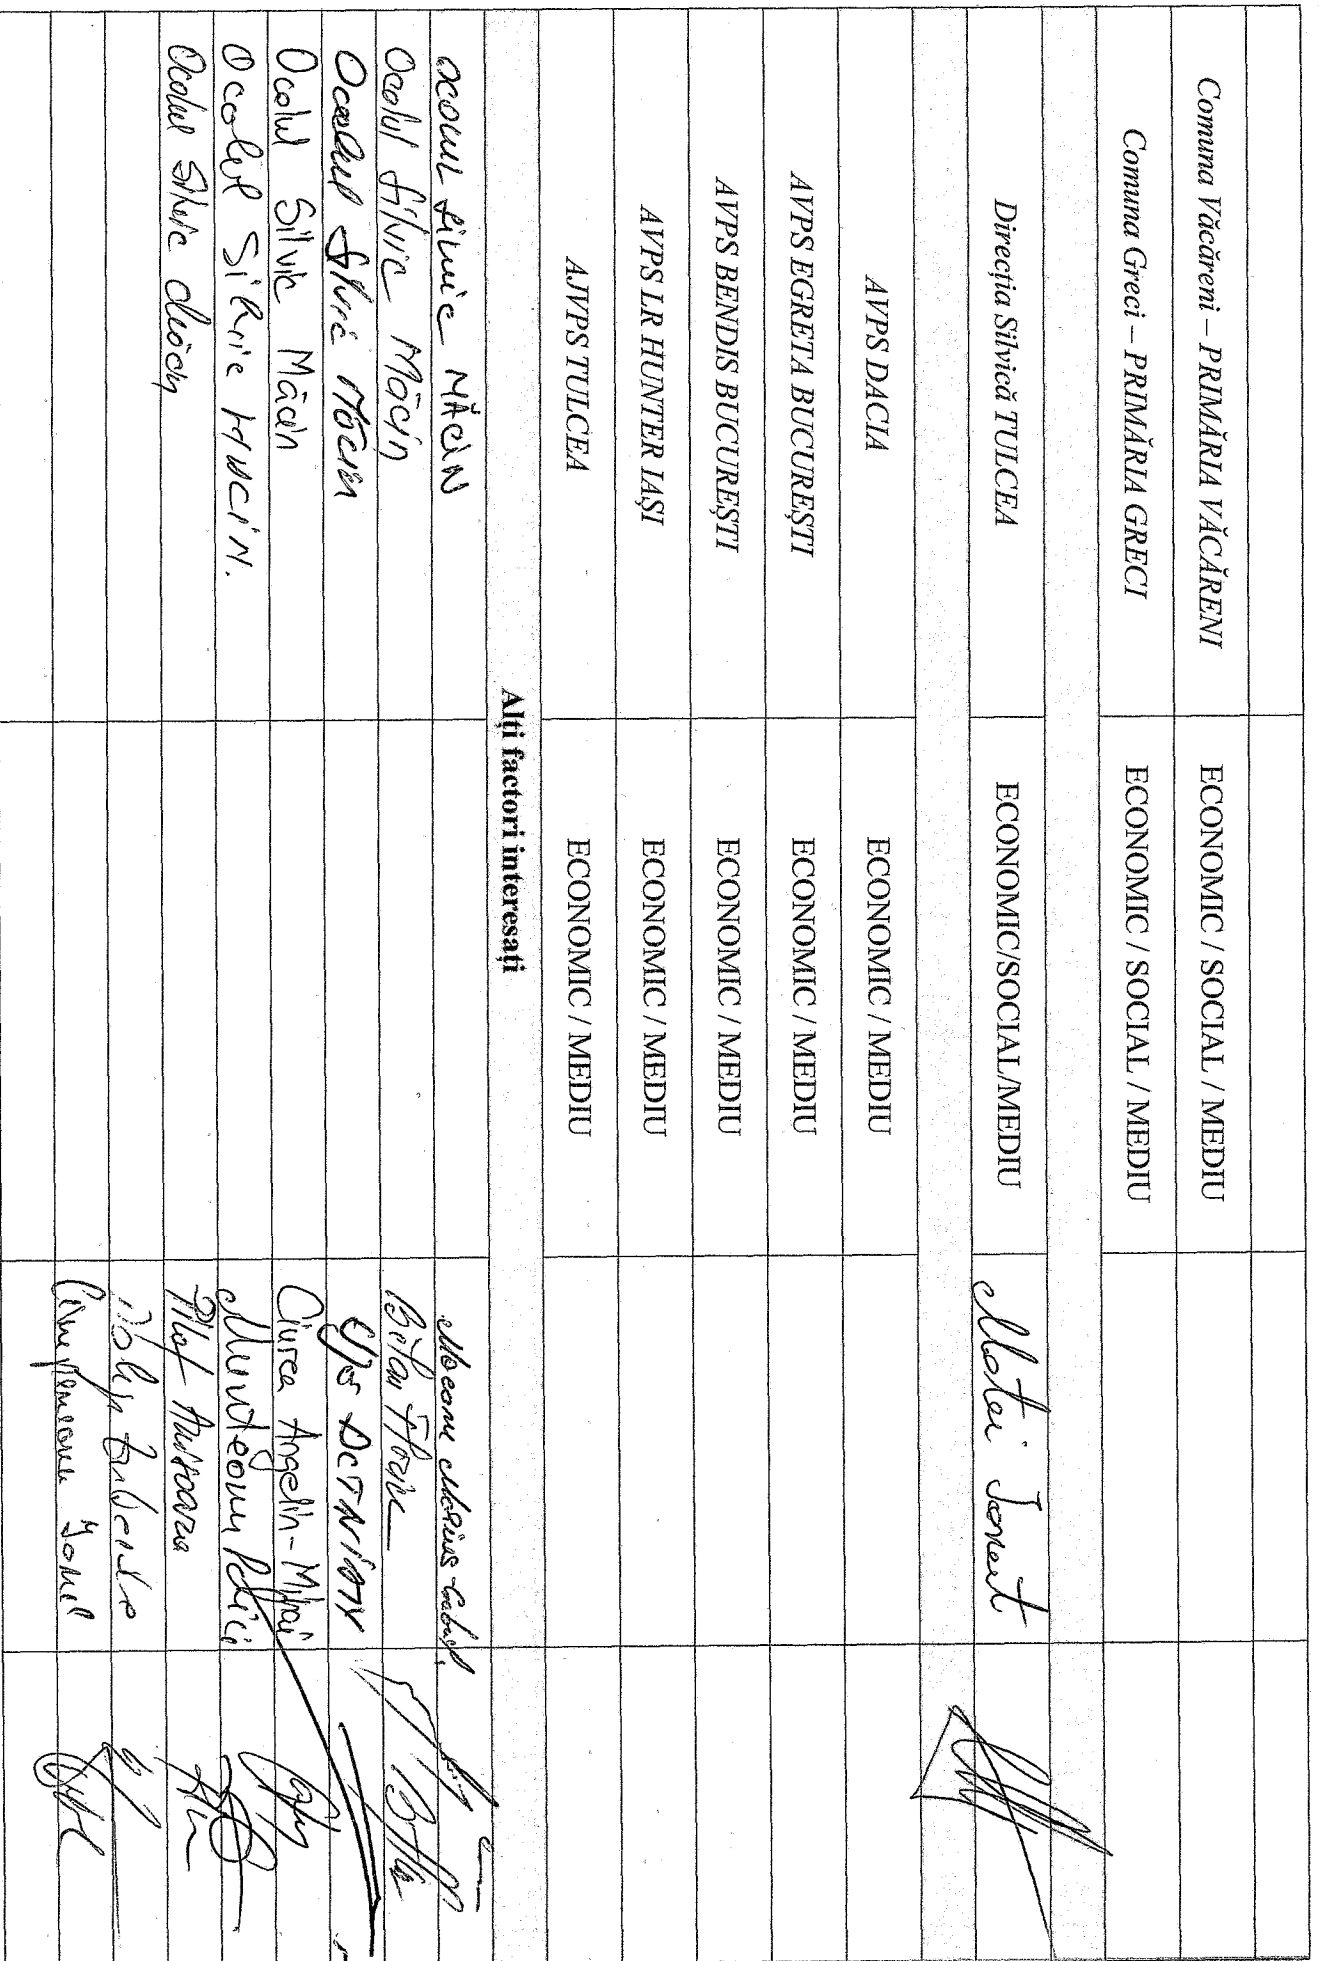 Comuna Văcăreni – PRIMĂRIA VĂCĂRENI ECONOMIC / SOCIAL / MEDIU
Comuna Greci – PRIMĂRIA GRECI ECONOMIC / SOCIAL / MEDIU
Direcția Silvică TULCEA ECONOMIC/SOCIAL/MEDIU Matei Ionent
AVPS DACIA ECONOMIC / MEDIU
AVPS EGRETA BUCUREȘTI ECONOMIC / MEDIU
AVPS BENDIS BUCUREȘTI ECONOMIC / MEDIU
AVPS LR HUNTER IAȘI ECONOMIC / MEDIU
AJVPS TULCEA ECONOMIC / MEDIU
Alți factori interesați
OCOLUL Silvic MĂCIN Mocanu Marius-Gabriel
Ocolul Silvic Măcin
Ocolul Silvic Măcin
Ocolul Silvic Măcin Ciurea Angelin-Mihai
Ocolul Silvic MĂCIN. Munteanu
Ocolul Silvic Măcin Pilat
Ionel